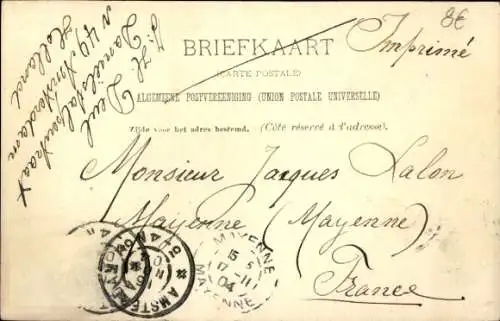 8€
Imprimé
BRIEFKAART
(CARTE POSTALE)
ALGEMEENE POSTVEREENIGING (UNION POSTALE UNIVERSELLE)
Zijde voor het adres bestemd. (Côté réservé à l'adresse).
J. H. Deul
Daniel Stalpertstraat
N 49 Amsterdam
Holland
Monsieur Jacques Lalon
Mayenne (Mayenne)
France
AMSTERDAM
MAYENNE
15
17-11
04
MAYENNE